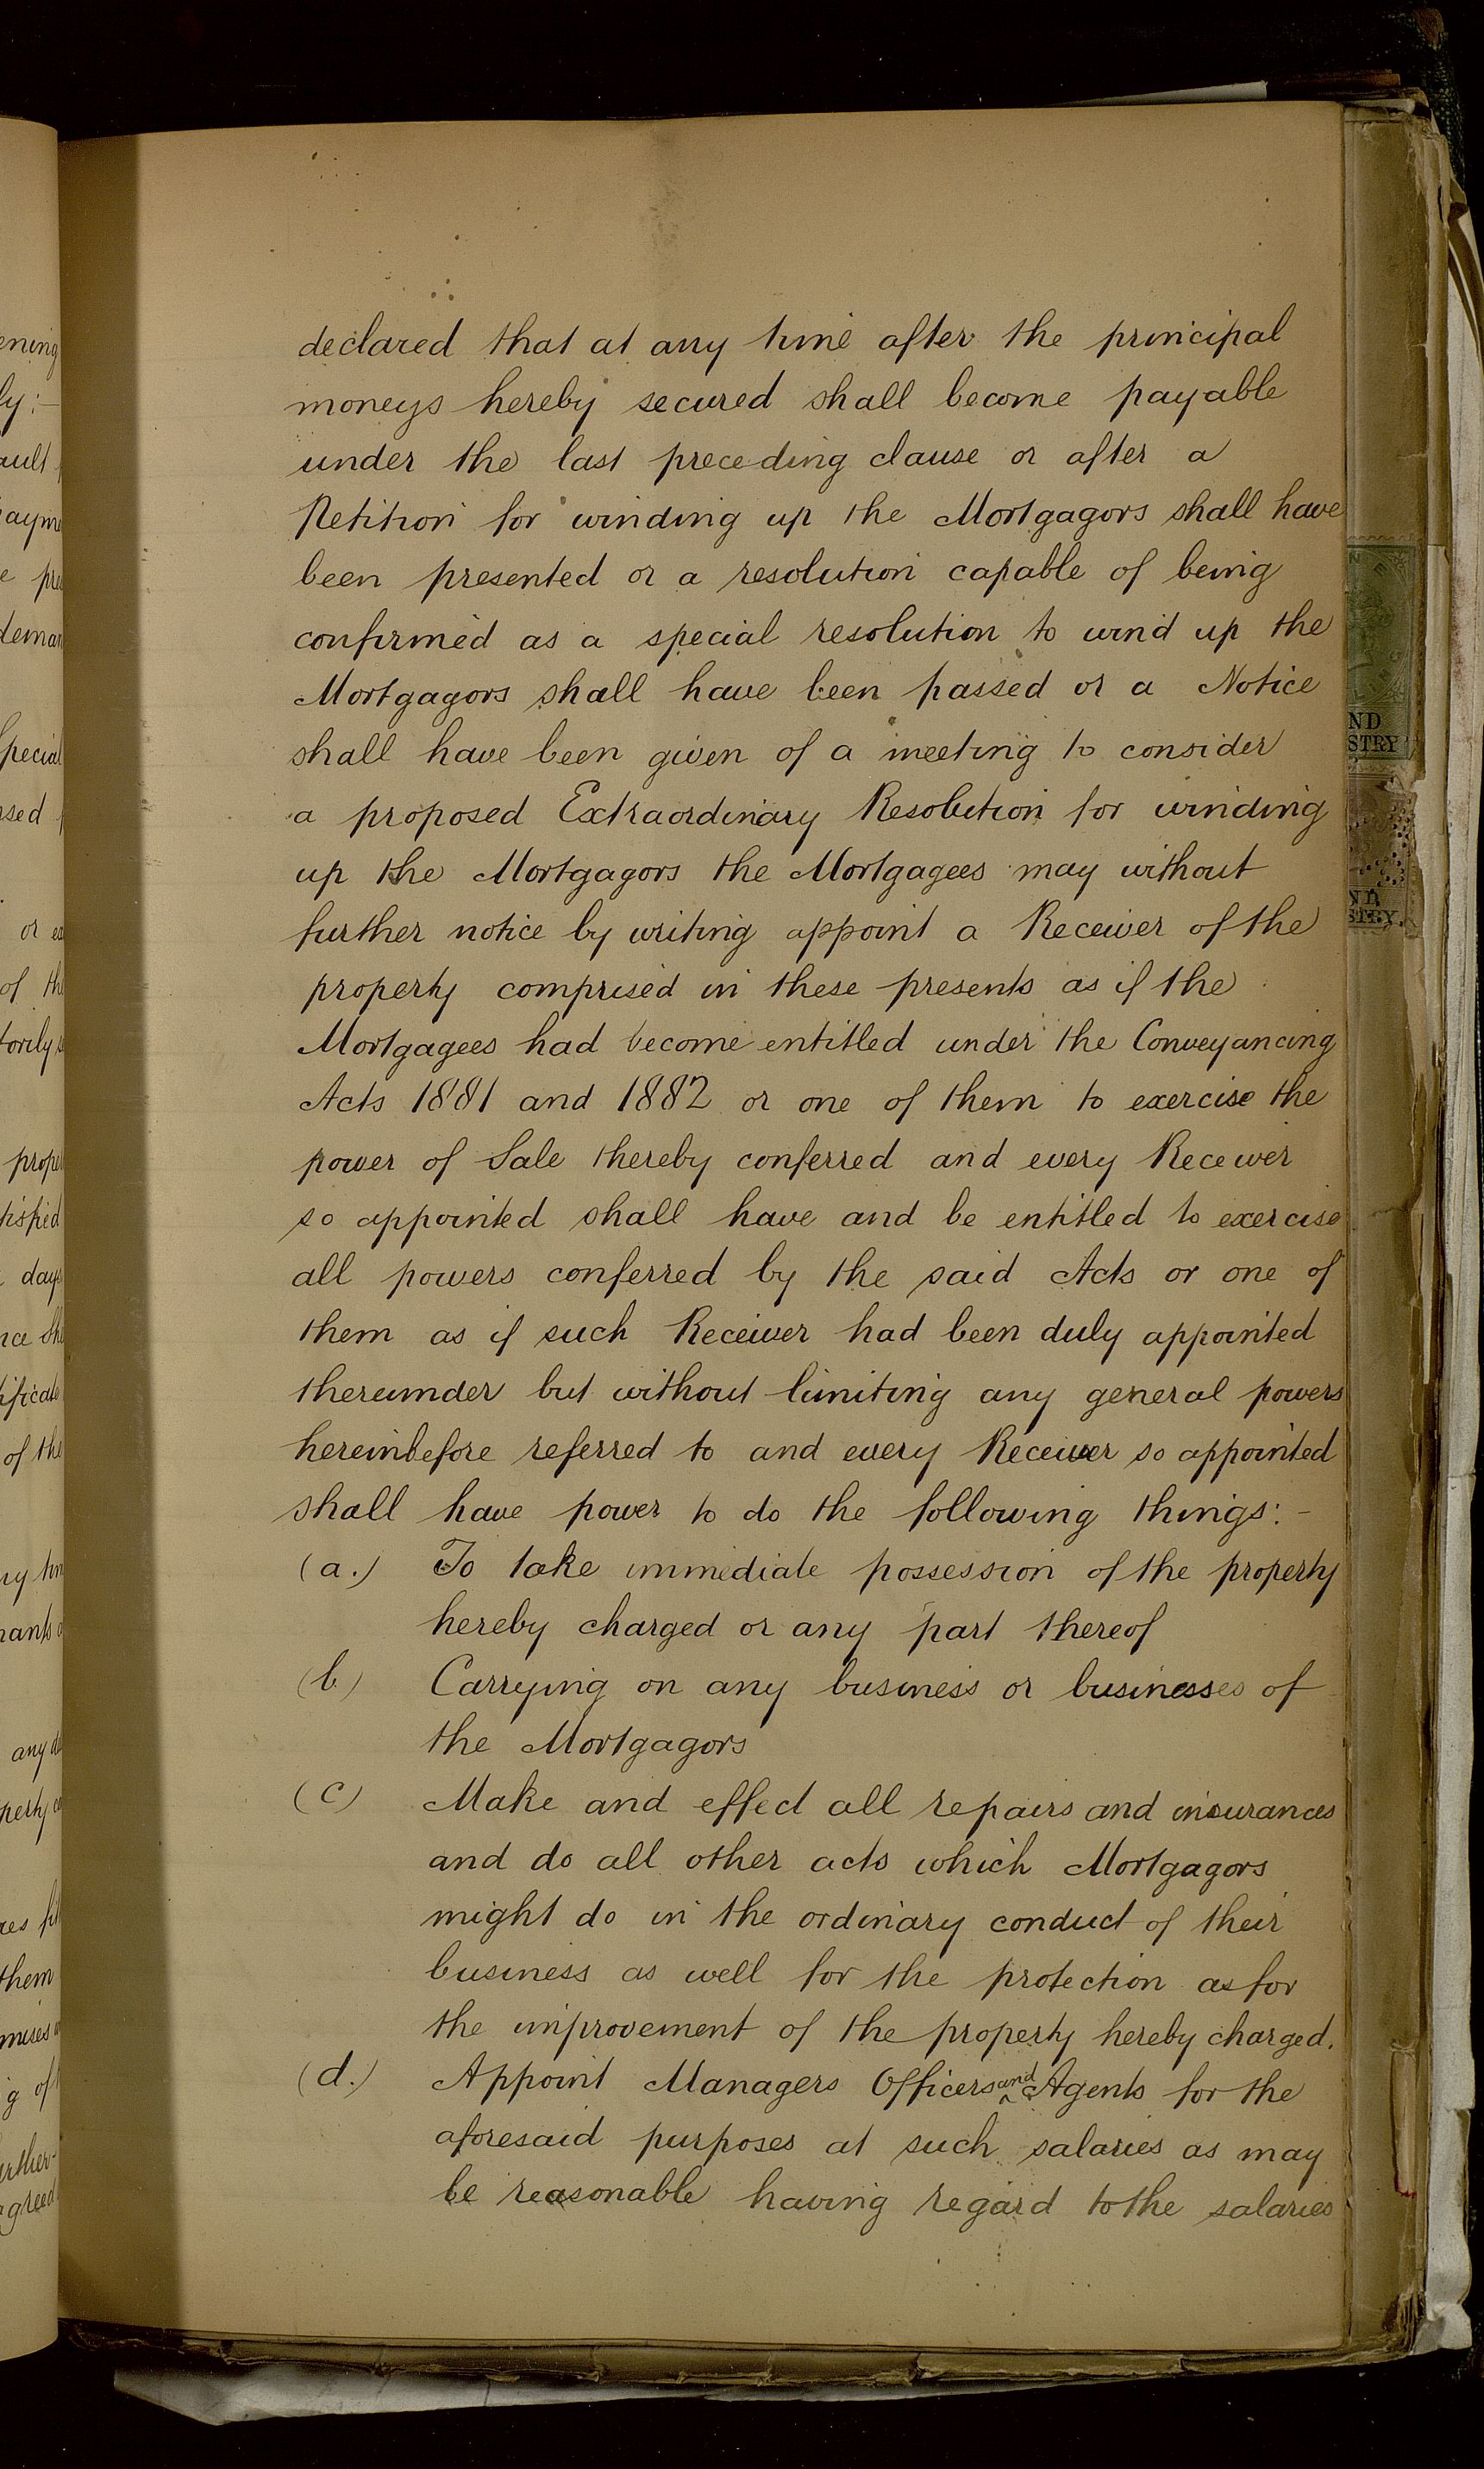 declared that at any time after the principal
moneys hereby secured shall become payable
under the last preceding clause or after a
Petition for winding up the Mortgagors shall have
been presented or a resolution capable of being
confirmed as a special resolution to wind up the
Mortgagors shall have been passed or a Notice
shall have been given of a meeting to consider
a proposed Extraordinary Resolution for winding
up the Mortgagors the Mortgagees may without
further notice by writing appoint a Receiver of the
property comprised in these presents as if the
Mortgagees had become entitled under the Conveyancing
Acts 1881 and 1882 or one of them to exercise the
power of Sale thereby conferred and every Receiver
so appointed shall have and be entitled to exercise
all powers conferred by the said Acts or one of
them as if such Receiver had been duly appointed
thereunder but without limiting any general powers
hereinbefore referred to and every Receiver so appointed
shall have power to do the following things:-
(a.) To take immediate possession of the property
hereby charged or any part thereof
(b) Carrying on any business or businesses of
the Mortgagors
(c) Make and effect all repairs and insurances
and do all other acts which Mortgagors
might do in the ordinary conduct of their
business as well for the protection as for
the improvement of the property hereby charged.
(d.) Appoint Managers Officers and Agents for the
aforesaid purposes at such salaries as may
be reasonable having regard to the salaries
ND
STRY
ND
STRY.